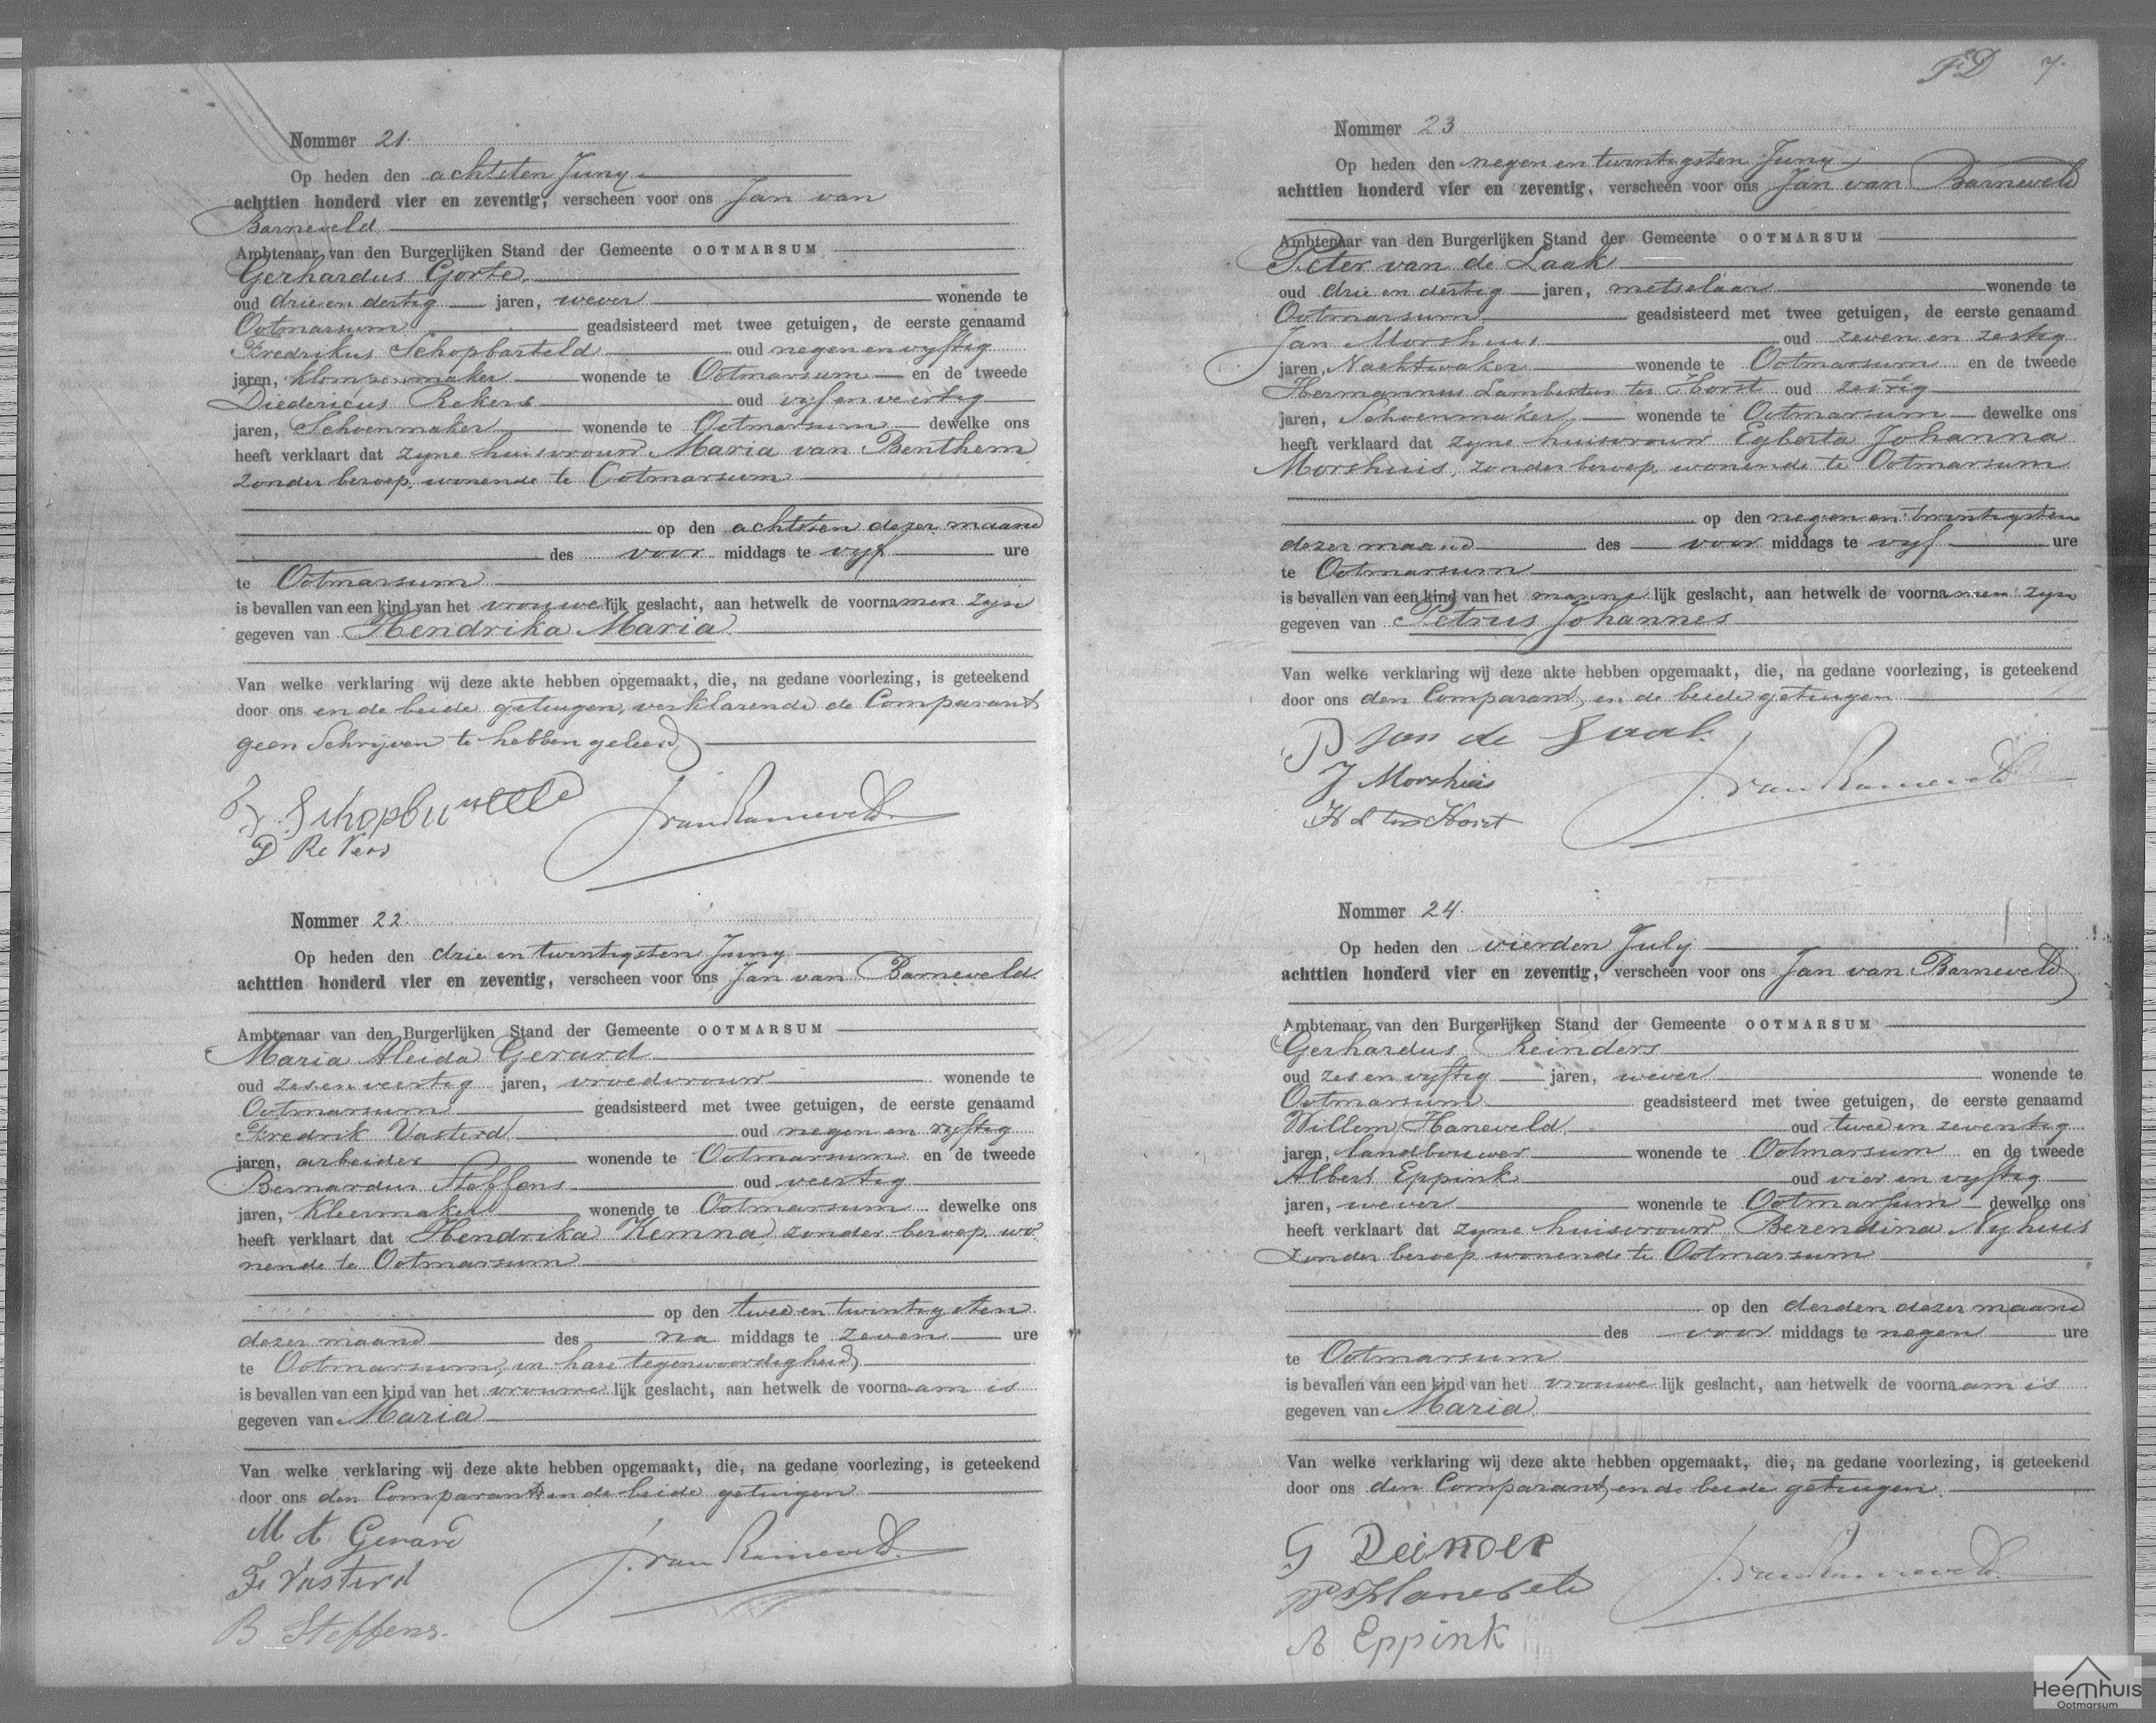 Nommer 21.
Op heden den achtsten Juny
achttien honderd vier en zeventig, verscheen voor ons Jan van
Barneveld
Ambtenaar van den Burgerlijken Stand der Gemeente OOTMARSUM
Gerhardus Gorte,
oud drie en dertig jaren, wever wonende te
Ootmarsum geadsisteerd met twee getuigen, de eerste genaamd
Fredrikus Schopbarteld oud negen en vyftig
jaren, klompenmaker wonende te Ootmarsum en de tweede
Diedericus Rekers oud vyf en veertig
jaren, Schoenmaker wonende te Ootmarsum dewelke ons
heeft verklaart dat zyne huisvrouw Maria van Benthem
zonder beroep, wonende te Ootmarsum
op den achtsten dezer maand
des voor middags te vyf ure
te Ootmarsum
is bevallen van een kind van het vrouwelijk geslacht, aan hetwelk de voornamen zyn
gegeven van Hendrika Maria
Van welke verklaring wij deze akte hebben opgemaakt, die, na gedane voorlezing, is geteekend
door ons en de beide getuigen, verklarende de Comparant
geen Schrijven te hebben geleerd
D Rekers
J. van Barneveld.
Nommer 22.
Op heden den drie en twintigsten Juny
achttien honderd vier en zeventig, verscheen voor ons Jan van Barneveld
Ambtenaar van den Burgerlijken Stand der Gemeente OOTMARSUM
Maria Aleida Gerard
oud zes en veertig jaren, vroedvrouw wonende te
Ootmarsum geadsisteerd met twee getuigen, de eerste genaamd
Fredrik Vasterd oud negen en vyftig
jaren, arbeider wonende te Ootmarsum en de tweede
Bernardus Steffens oud veertig
jaren, Kleermaker wonende te Ootmarsum dewelke ons
heeft verklaart dat Hendrika Kemna zonder beroep wo
nende te Ootmarsum
op den twee en twintigsten
dezer maand des na middags te zeven ure
te Ootmarsum, in hare tegenwoordigheid,
is bevallen van een kind van het vrouwe lijk geslacht, aan hetwelk de voornaam is
gegeven van Maria
Van welke verklaring wij deze akte hebben opgemaakt, die, na gedane voorlezing, is geteekend
door ons den Comparant, en de beide getuigen
M A Gerard
F. Vasterd
B Steffens.
J. van Barneveld.
FD 7.
Nommer 23
Op heden den negen en twintigsten Juny
achttien honderd vier en zeventig, verscheen voor ons Jan van Barneveld
Ambtenaar van den Burgerlijken Stand der Gemeente OOTMARSUM
Peter van de Laak
oud drie en dertig jaren, metselaar wonende te
Ootmarsum geadsisteerd met twee getuigen, de eerste genaamd
Jan Morshuis oud zeven en zestig
jaren, Nachtwaker wonende te Ootmarsum en de tweede
Hermannus Lambertus ter Horst oud zestig
jaren, Schoenmaker, wonende te Ootmarsum dewelke ons
heeft verklaard dat zyne huisvrouw Egberta Johanna
Morshuis, zonder beroep, wonende te Ootmarsum
op den negen en twintigsten
dezer maand des voor middags te vyf ure
te Ootmarsum
is bevallen van een kind van het manne lijk geslacht, aan hetwelk de voornamen zyn
gegeven van Petrus Johannes
Van welke verklaring wij deze akte hebben opgemaakt, die, na gedane voorlezing, is geteekend
door ons den Comparant, en de beide getuigen
P van de Laak
J Morshuis
H L ter Horst
J. van Barneveld
Nommer 24.
Op heden den vierden July
achttien honderd vier en zeventig, verscheen voor ons Jan van Barneveld
Ambtenaar van den Burgerlijken Stand der Gemeente OOTMARSUM
Gerhardus Reinders
oud zes en vyftig jaren, wever wonende te
Ootmarsum geadsisteerd met twee getuigen, de eerste genaamd
Willem Haneveld oud twee en zeventig
jaren, landbouwer wonende te Ootmarsum en de tweede
Albert Eppink oud vier en vyftig
jaren, wever wonende te Ootmarsum dewelke ons
heeft verklaart dat zyne huisvrouw Berendina Nyhuis
zonder beroep wonende te Ootmarsum
op den derden dezer maand
des voor middags te negen ure
te Ootmarsum
is bevallen van een kind van het vrouwe lijk geslacht, aan hetwelk de voornaam is
gegeven van Maria
Van welke verklaring wij deze akte hebben opgemaakt, die, na gedane voorlezing, is geteekend
door ons den Comparant, en de beide getuigen.
G Reinder
A Eppink
J. van Barneveld.
Heemhuis
Ootmarsum